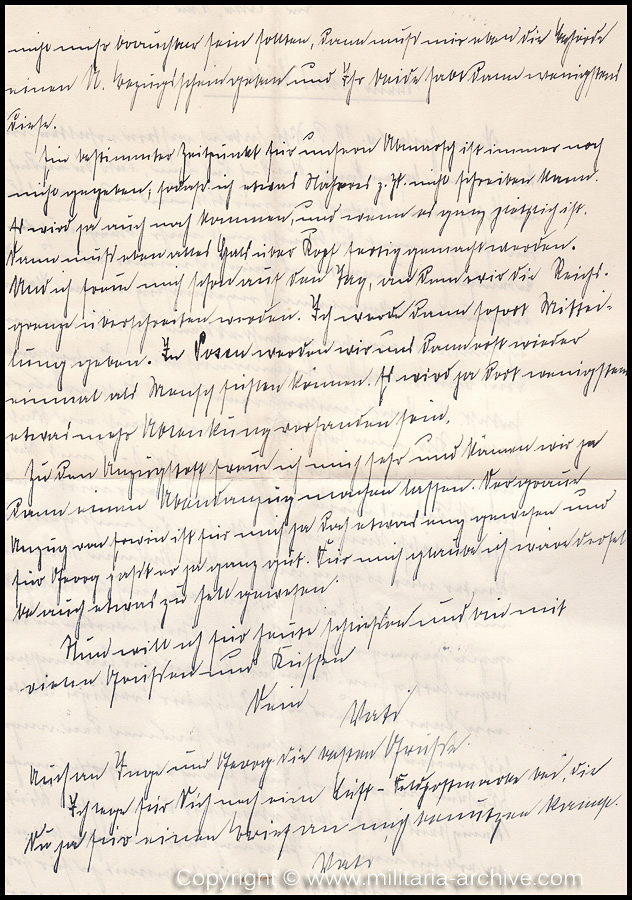 nicht mehr brauchbar sein sollten, dann muß mir eben die Behörde
einen N. Bezugsschein geben und Ihr beide habt dann wenigstens
diese.
Ein bestimmter Zeitpunkt für unsern Abmarsch ist immer noch
nicht gegeben, sodaß ich etwas Näheres z. Zt. nicht schreiben kann.
Es wird ja auch noch kommen, und wenn es ganz plötzlich ist.
Dann muß eben alles Hals über Kopf fertig gemacht werden.
Und ich freue mich schon auf den Tag, an dem wir die Reichs-
grenze überschreiten werden. Ich werde dann sofort Mittei-
lung geben. In Posen werden wir uns dann erst wieder
einmal als Mensch fühlen können. Es wird ja dort wenigstens
etwas mehr Ablenkung vorhanden sein.
Zu dem Anzugstoff freue ich mich sehr und können wir ja
dann einen Abendanzug machen lassen. Der graue
Anzug von Erwin ist für mich ja doch etwas eng gewesen und
für Georg paßt er ja ganz gut. Für mich glaube ich wäre dersel-
be auch etwas zu hell gewesen
Nun will ich für heute schließen und bin mit
vielen Grüssen und Küssen
Dein Vati
Auch an Inge und Georg die besten Grüsse.
Ich lege für Dich noch eine Luft-Feldpostmarke bei, die
Du ja für einen Brief an mich benutzen kannst.
Vati
Copyright © www.militaria-archive.com